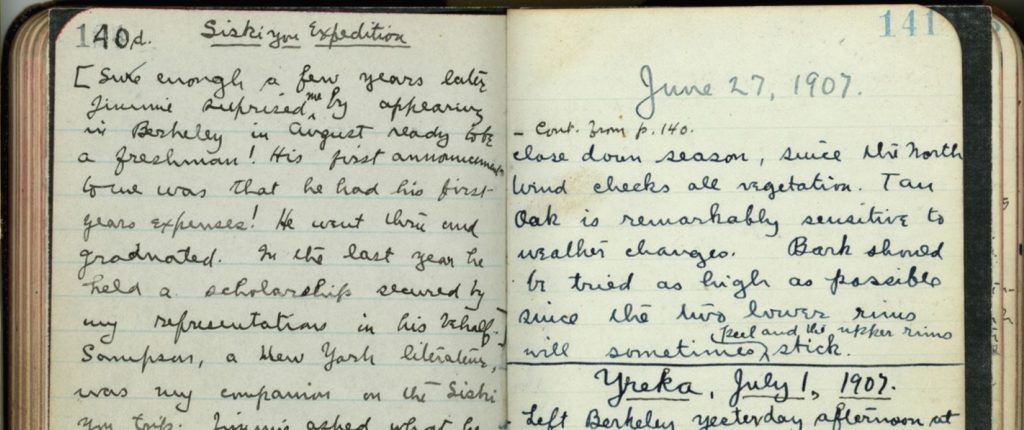 140d. Siskiyou Expedition
[ Sure enough a few years later
Jimmie suprised me by appearing
in Berkeley in August ready to be
a freshman! His first announcement
to me was that he had his first
years expenses! He went thru and
graduated. In the last year he
held a scholarship secured by
my representations in his behalf.
Sampson, a New York literateur,
was my companion on the Siski
you trip. Jimmie asked what he
141
June 27, 1907.
- Cont. from p. 140.
close down season, since the North
wind checks all vegetation. Tan
Oak is remarkably sensitive to
weather changes. Bark should
be tried as high as possible
since the two lower rims
will sometimes peel and the upper rims stick.
Yreka, July 1, 1907.
Left Berkeley yesterday afternoon at